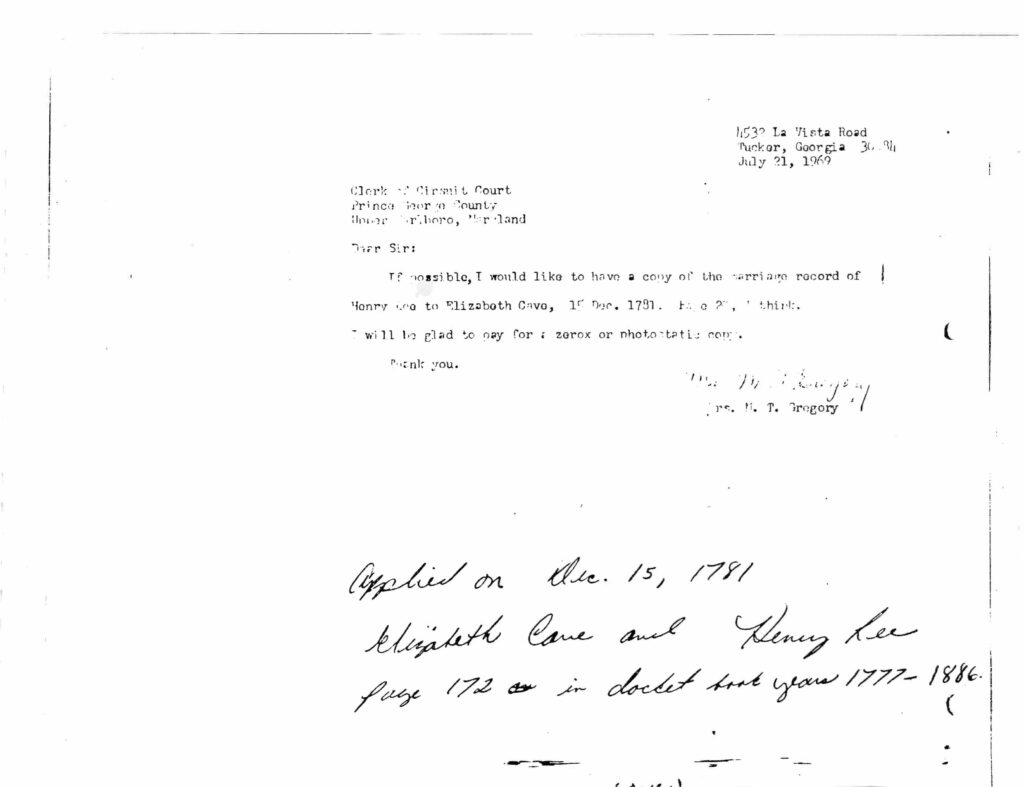 4532 La Vista Road
Tucker, Georgia
July 21, 1969
Clerk of Circuit Court
Prince George County
Upper Marlboro, Maryland
Dear Sir:
If possible, I would like to have a copy of the marriage record of
Henry Lee to Elizabeth Cave, 15 Dec. 1781. Page I think.
I will be glad to pay for a zerox or photostatic copy.
Thank you.
Mrs. M. T. Gregory
Mrs. M. T. Gregory
Applied on Dec. 15, 1781
Elizabeth Cave and Henry Lee
page 172 in docket book years 1777-1886.